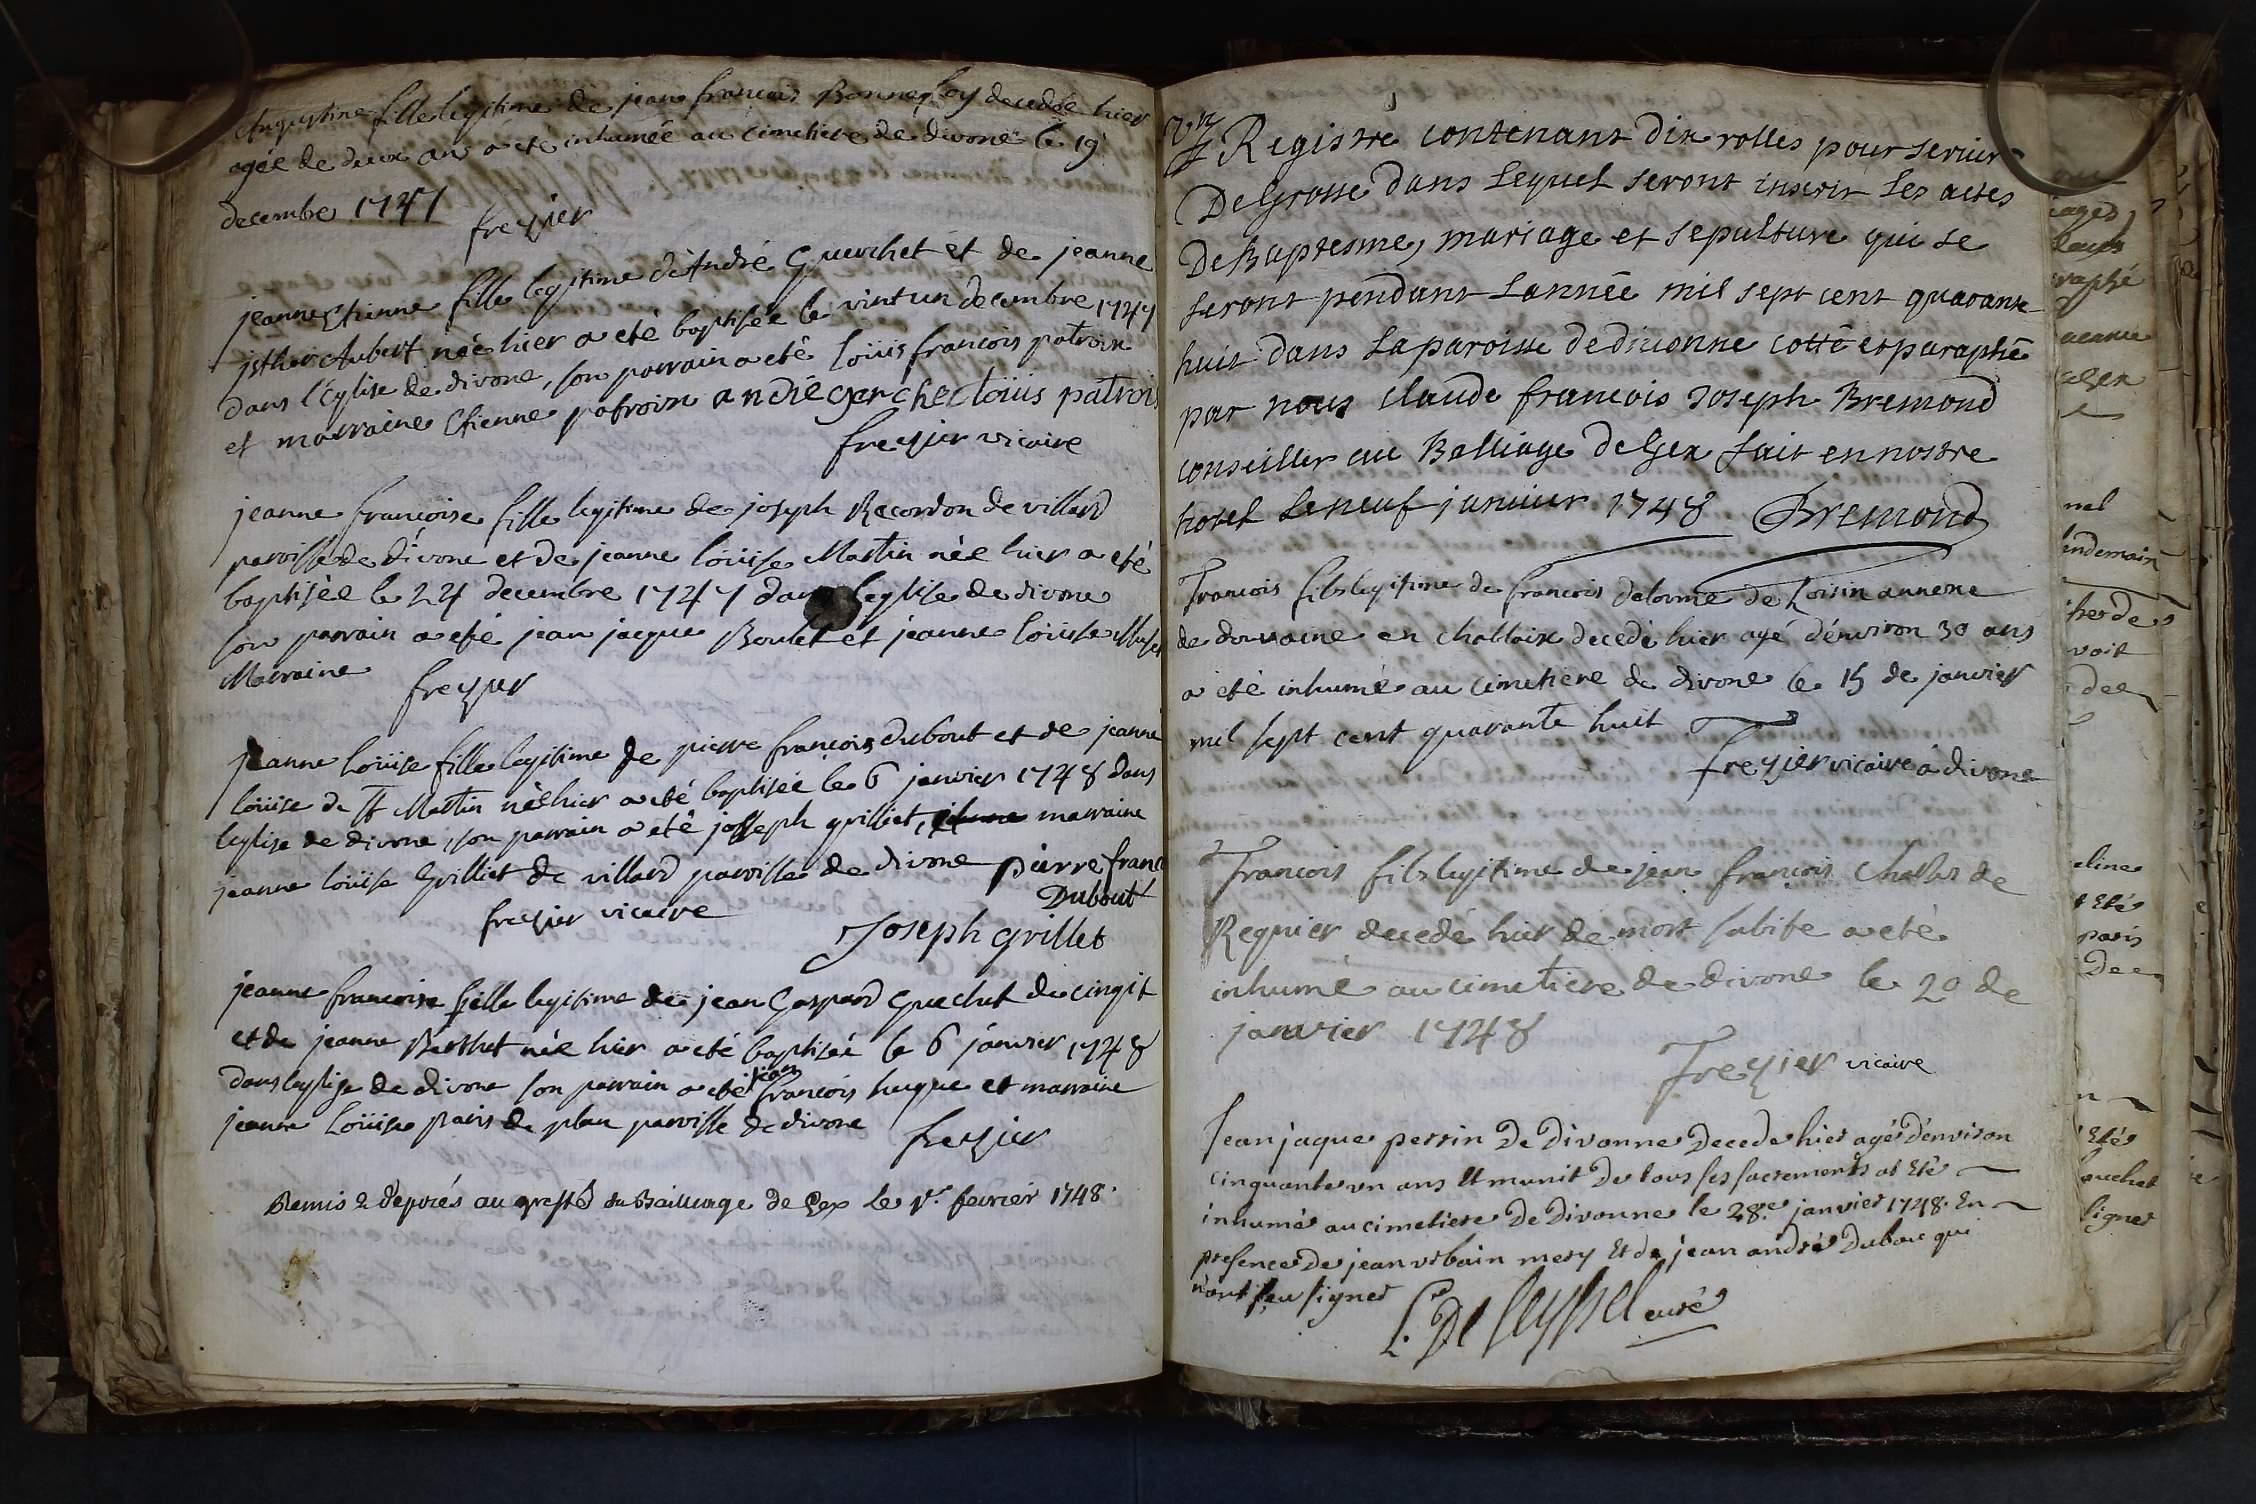 Augustine fille legitime de jean francois Bonnefoy decedée hier
agée de deux ans a eté inhumée au cimetiere de divone le 19
decembre 1747
frezier
jeanne Etienne fille legitime d'André Guerchet et de jeanne
jsther Aubert née hier a eté baptisée le vint un decembre 1747
dans l'Eglise de divone, son parrain a eté loüis francois patroin
et marraine Etienne patroin andre gercher loüis patroin
frezier vicaire
jeanne françoise fille legitime de joseph Recordon de villard
paroisse de divone et de jeanne loüise Martin née hier a eté
baptisée le 24 decembre 1747 dans leglise de divone
son parrain a eté jean jacque Boulet et jeanne loüise
Marraine
frezier
jeanne loüise fille legitime de pierre françois dubout et de jeanne
loüise du Martin née hier a eté baptisée le 6 janvier 1748 dans
leglise de divone, son parrain a eté josseph grilliet, marraine
jeanne loüise Grilliet de villard paroisse de divone pierre franc
Dubout
frezier vicaire
Joseph grillet
jeanne francoise fille legitime de jean Gaspard Guechet de cingit
et de jeanne Berthet née hier a eté baptisée le 6 janvier 1748
dans leglise de divone son parrain a eté jean francois huque et marraine
jeanne loüise paris de plan paroisse de divone
frezier
Remis & deposés au greffe du Bailliage de Gex le 1er. fevrier 1748.
Registre contenant dix rolles pour servir
De Grosse dans Lequel seront inscrit Les actes
De Baptesme, mariage et sepulture qui se
feront pendant Lannée mil sept cent quarante
huit dans La paroisse de divonne cotté et paraphé
par nous Claude francois Joseph Bremond
conseiller au Balliage de Gex fait en nostre
hotel Le neuf janvier 1748 Bremond
Francois fils legitime de francois delorme de Loisin annexe
de douvaine en challaix decedé hier agé d'environ 30 ans
a eté inhumé au cimetiere de divone le 15 de janvier
mil sept cent quarante huit
Frezier vicaire à divone
Francois fils legitime de jean françois Challes de
Regnier decedé hier de mort subite a eté
inhumé au cimetiere de divone le 20 de
janvier 1748
Frezier vicaire
Jean jaque perrin De Divonne Decede hier agé d'environ
cinquante un ans Et munit De tous ses sacrements at Eté
inhumé au cimetiere De Divonne le 28e. janvier 1748. En
presence de jean urbain mery Et de jean andré Dubou qui
n'ont sçeu signer
De Seyssel curé